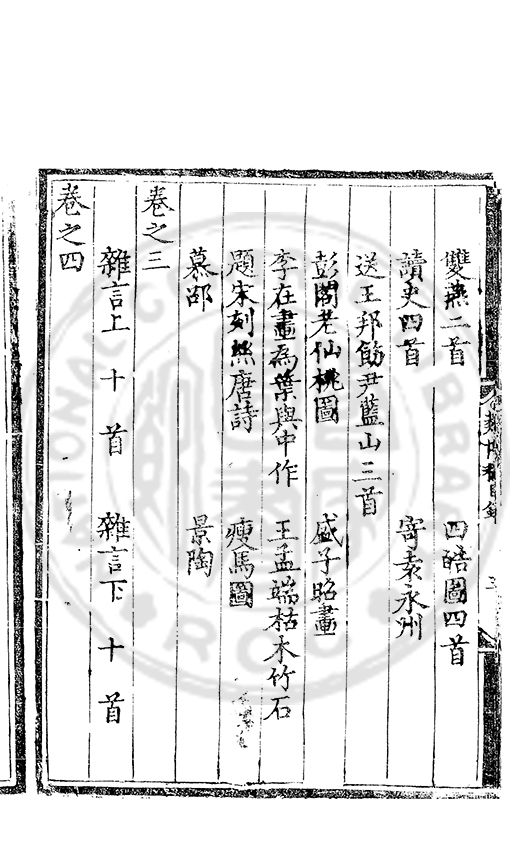 雙燕二首 四皓圖四首
讀史四首 寄袁永州
送王邦飭尹藍山三首
彭閣老仙桃圖 盛子昭畫
李在畫為葉與中作 王孟端枯木竹石
題宋刻絲唐詩 瘦馬圖
慕邵 景陶
卷之三
雜言上十首 雜言下十首
卷之四